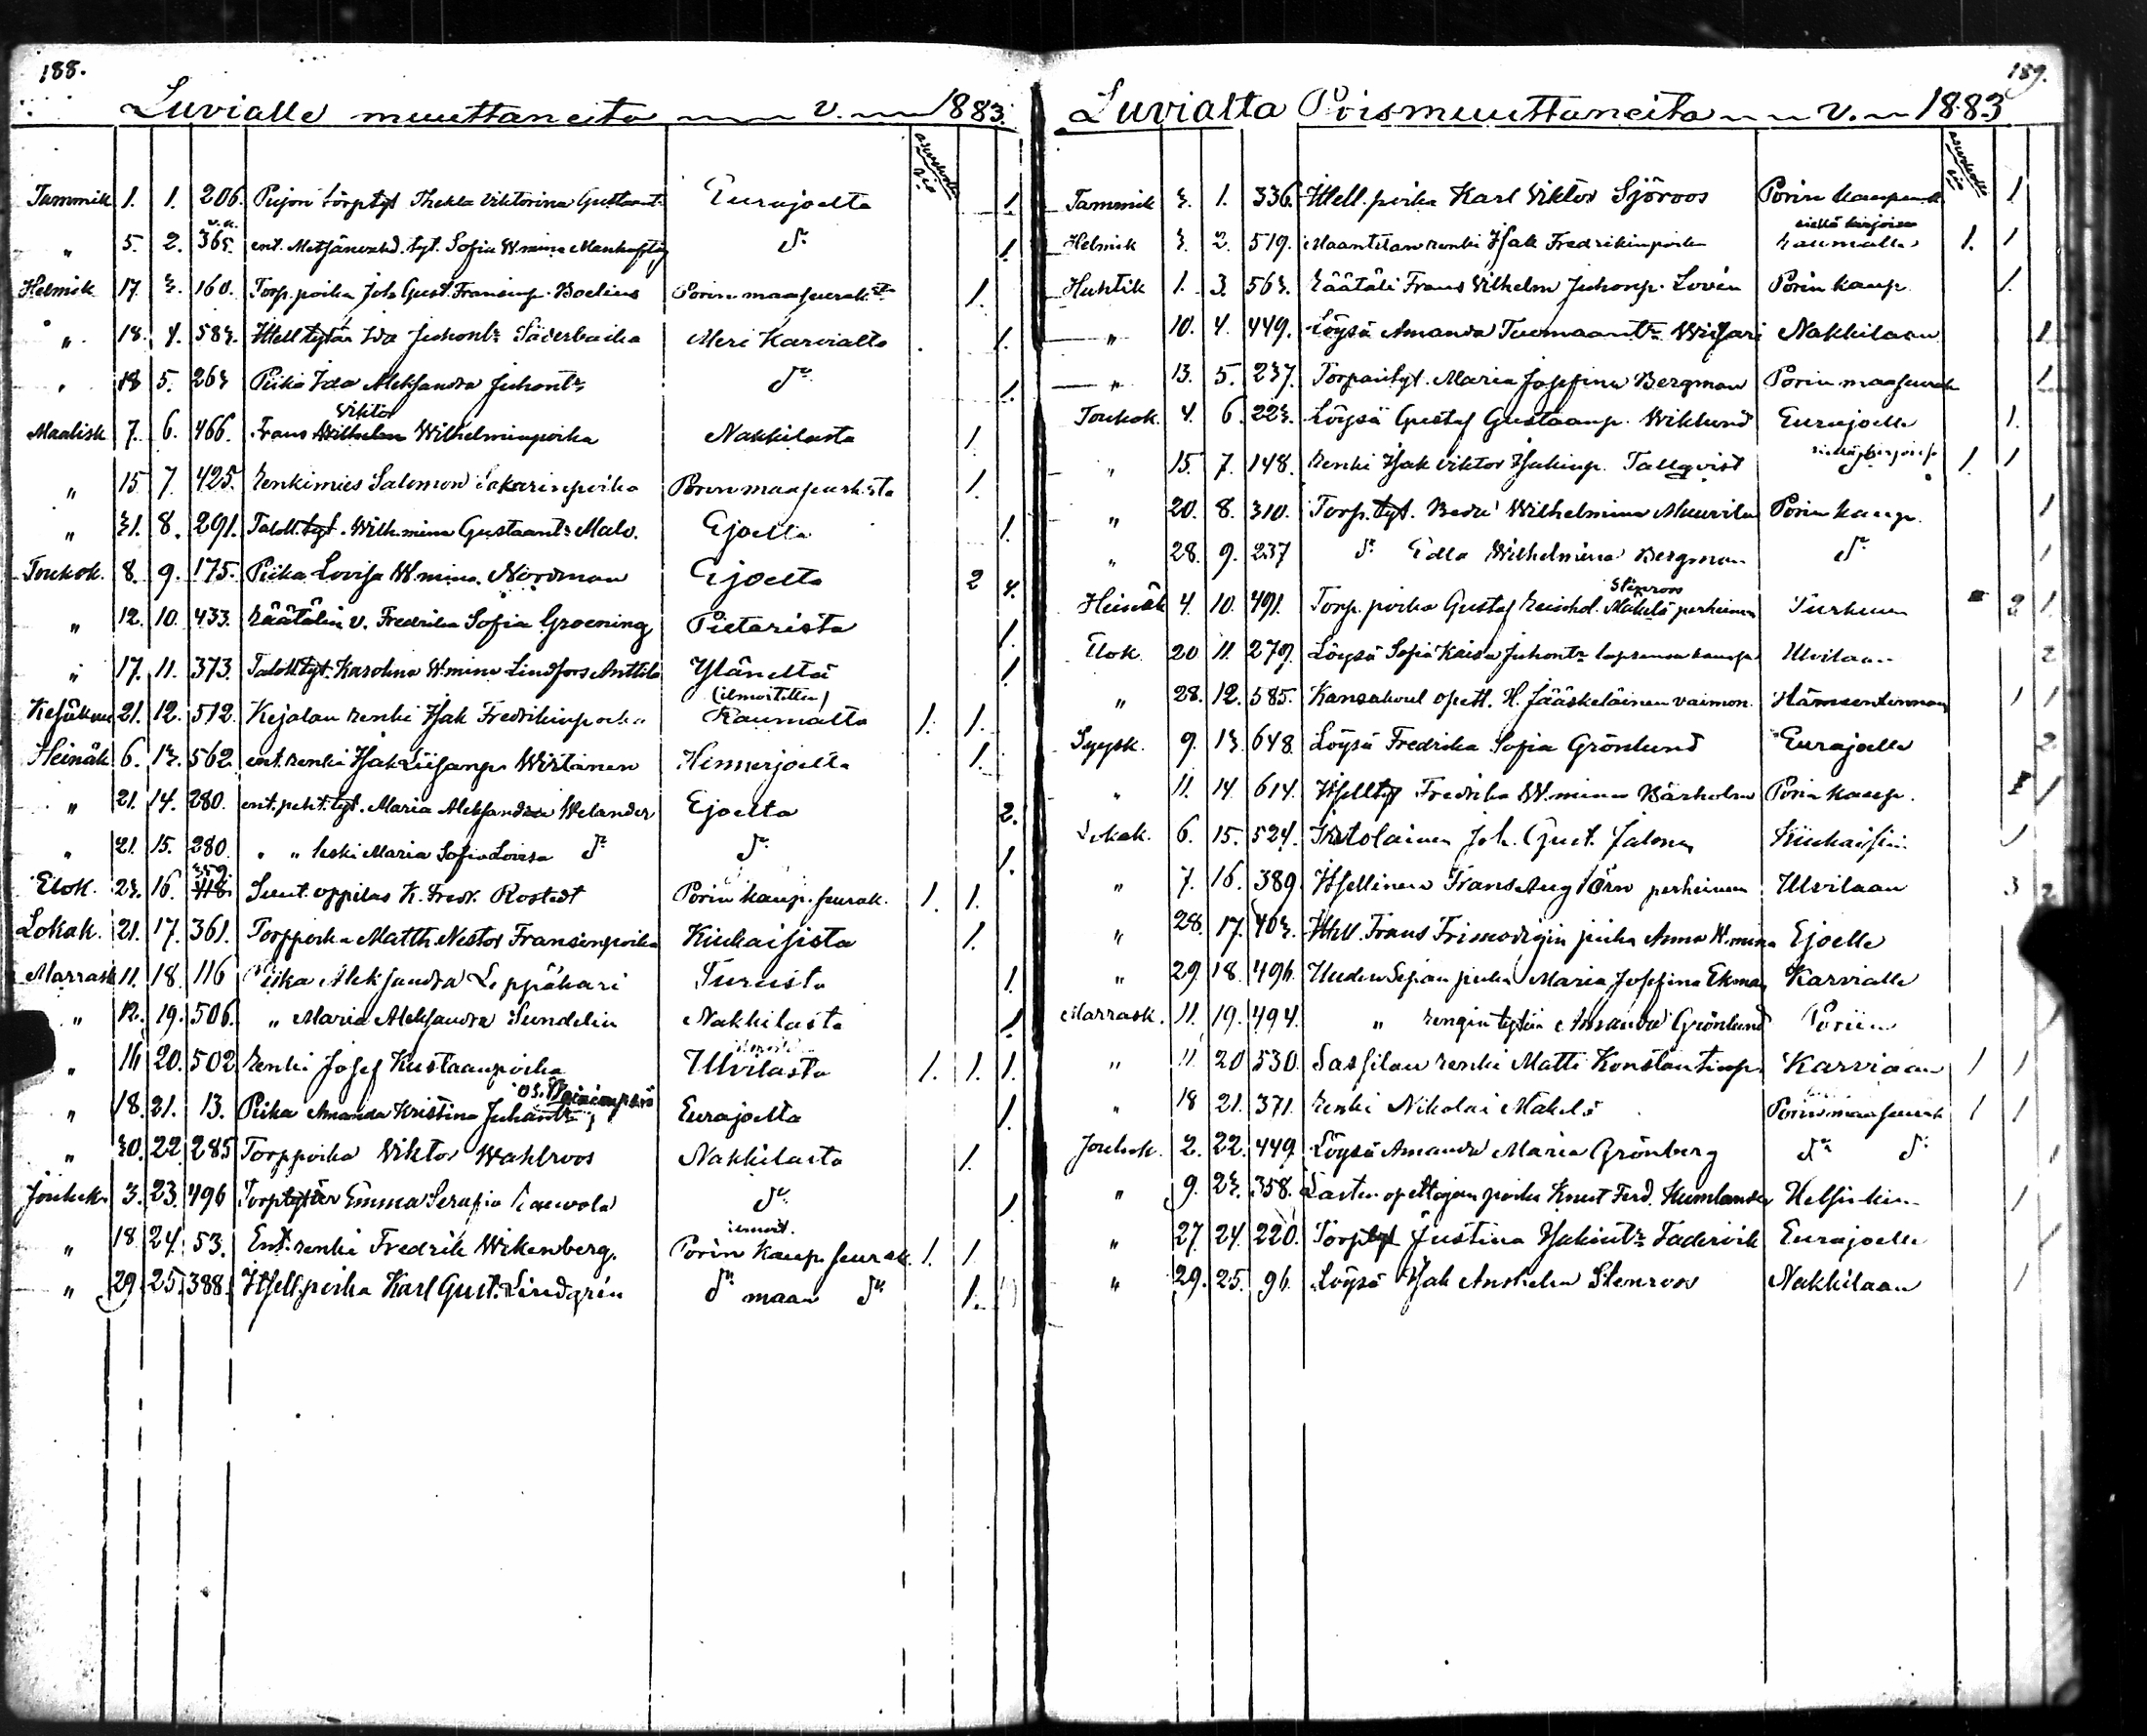 188.
Luvialle muuttaneita v. 1883.
Tammik 1. 1. 206. torp.tyt Thekla Viktorina Gustaant. Eurajoelta 1.
" 5. 2. 363. ent. tyt. Sofia W.mina do 1.
Helmik 17. 3. 160. Torp. poika Joh. Gust. Fransinp. Boelius Porin maaseurak:sta 1.
" 18. 4. 583. Itsell. tytär Ida Juhontr Söderbacka Meri Karvialta 1.
" 18 5. 263 Piika Ida Aleksandra Juhontr do 1.
Viktor
Maalisk 7. 6. 466. Frans Wilhelm Wilhelminpoika Nakkilasta 1.
" 15 7. 425. Renkimies Salomon Sakarinpoika Porin maaseurak:sta 1.
" 31. 8. 291. Taloll. tyt. Wilh.mina Gustaantr Malo. Ejoelta 1.
Toukok. 8. 9. 175. Piika Lovisa W.mina Nordman Ejoelta 2 4.
" 12. 10. 433. Räätälin v. Fredrika Sofia Groening Pietarista 1.
" 17. 11. 373. Taloll. tyt. Karolina W.mina Lindfors Anttila Yläneltä 1.
(ilmoitettu)
Kesäkuu 21. 12. 512. renki Isak Fredrikinpoika Raumalta 1. 1.
Heinäk 6. 13. 562. ent. renki Isak Liisanp. Wirtanen Hinnerjoelta 1.
" 21. 14. 280. ent. tyt. Maria Aleksandra Welander Ejoelta 2.
" 21. 15. 280. " " leski Maria Sofia Lovisa do do 1.
359.
Elok. 23. 16. 418. oppilas K. Fredr. Rostedt Porin kaup. seurak. 1. 1.
Lokak. 21. 17. 361. Torp poika Matth. Nestor Fransinpoika Kiukaisista 1.
Marrask 11. 18. 116 Piika Aleksandra Leppäkari Turusta 1.
" 12. 19. 506. " Maria Aleksandra Sundelin Nakkilasta 1.
" 16 20. 502 Renki Josef Kustaanpoika Ulvilasta 1. 1. 1.
" 18. 21. 13. Piika Amanda Kristina Juhontr Eurajoelta 1.
" 30. 22. 285 Torp poika Viktor Wahlroos Nakkilasta 1.
Jouluk. 3. 23. 496 Torp tytär Emma Serafia do 1.
ilmoit.
" 18. 24. 53. Ent. renki Fredrik Wikenberg. Porin kaup. seurak. 1. 1.
" 29. 25. 388. Itsell. poika Karl Gust. Lindgrén do maa do 1.
189.
Luvialta Poismuuttaneita v. 1883
Tammik 3. 1. 336. Itsell. poika Karl Viktor Sjöroos Porin kaupunk. 1
siellä kirjoissa
Helmik 3. 2. 519. Maantilan renki Isak Fredrikinpoika Raumalla 1. 1
Huhtik 1. 3. 563. Räätäli Frans Wilhelm Juhonp. Lovén Porin kaup. 1.
" 10. 4. 449. Löysä Amanda Tuomaantr Nakkilaan 1.
" 13. 5. 237. Torparityt. Maria Josefina Bergman Porin maaseurak 1
Toukok. 4. 6. 223. Löysä Gustaf Gustaanp. Wiklund Eurajoelle 1.
" 15. 7. 148. Renki Isak Viktor Isakinp. Tallqvist 1. 1
" 20. 8. 310. Torp. tyt. Wilhelmina Muurila Porin kaup. 1
" 28. 9. 237 do Edla Wilhelmina Bergman do 1
Stenroos
Heinäk 4. 10. 491. Torp. poika Gustaf Reinhol. Mäkelä perheineen Turkuun 2 1.
Elok. 20 11. 279. Löysä Sofia Kaisa Juhontr lapsensa kanssa Ulvilaan 2
" 28. 12. 585. Kansakoul. opett. H. Jääskeläinen vaimon. Hämeenlinnaan 1 1
Syysk. 9. 13. 648. Löysä Fredrika Sofia Grönlund Eurajoelle 2
" 11. 14. 614. Itselltyt Fredrika W.mina Porin kaup. 1
Lokak. 6. 15. 524. Joh. Gust. Jalonen Kiukaisiin 1
" 7. 16. 389. Itsellinen Frans Aug. Törn perheineen Ulvilaan 3 2
" 28. 17. 403. Itsell. Frans piika Anna W.mina Ejoelle
" 29. 18. 496. Uuden Sepän piika Maria Josefina Ekman Karvialle 1
Marrask. 11. 19. 494. " rengin tytär Amanda Grönlund Poriin 1
" 11. 20 530. Sassilan renki Matti Konstantinp. Karviaan 1 1
" 18 21. 371. Renki Nikolai Mäkelä Porin maaseurak 1 1
Jouluk. 2. 22. 449. Löysä Amanda Maria Grönberg do do 1
" 9. 23. 358. Lasten opettajan poika Knut Ferd. Humlander Helsinkiin 1
" 27. 24. 220. Torptyt Justina Isakintr Fadervik Eurajoelle 1
" 29. 25. 96. Löysä Isak Anshelm Stenroos Nakkilaan 1